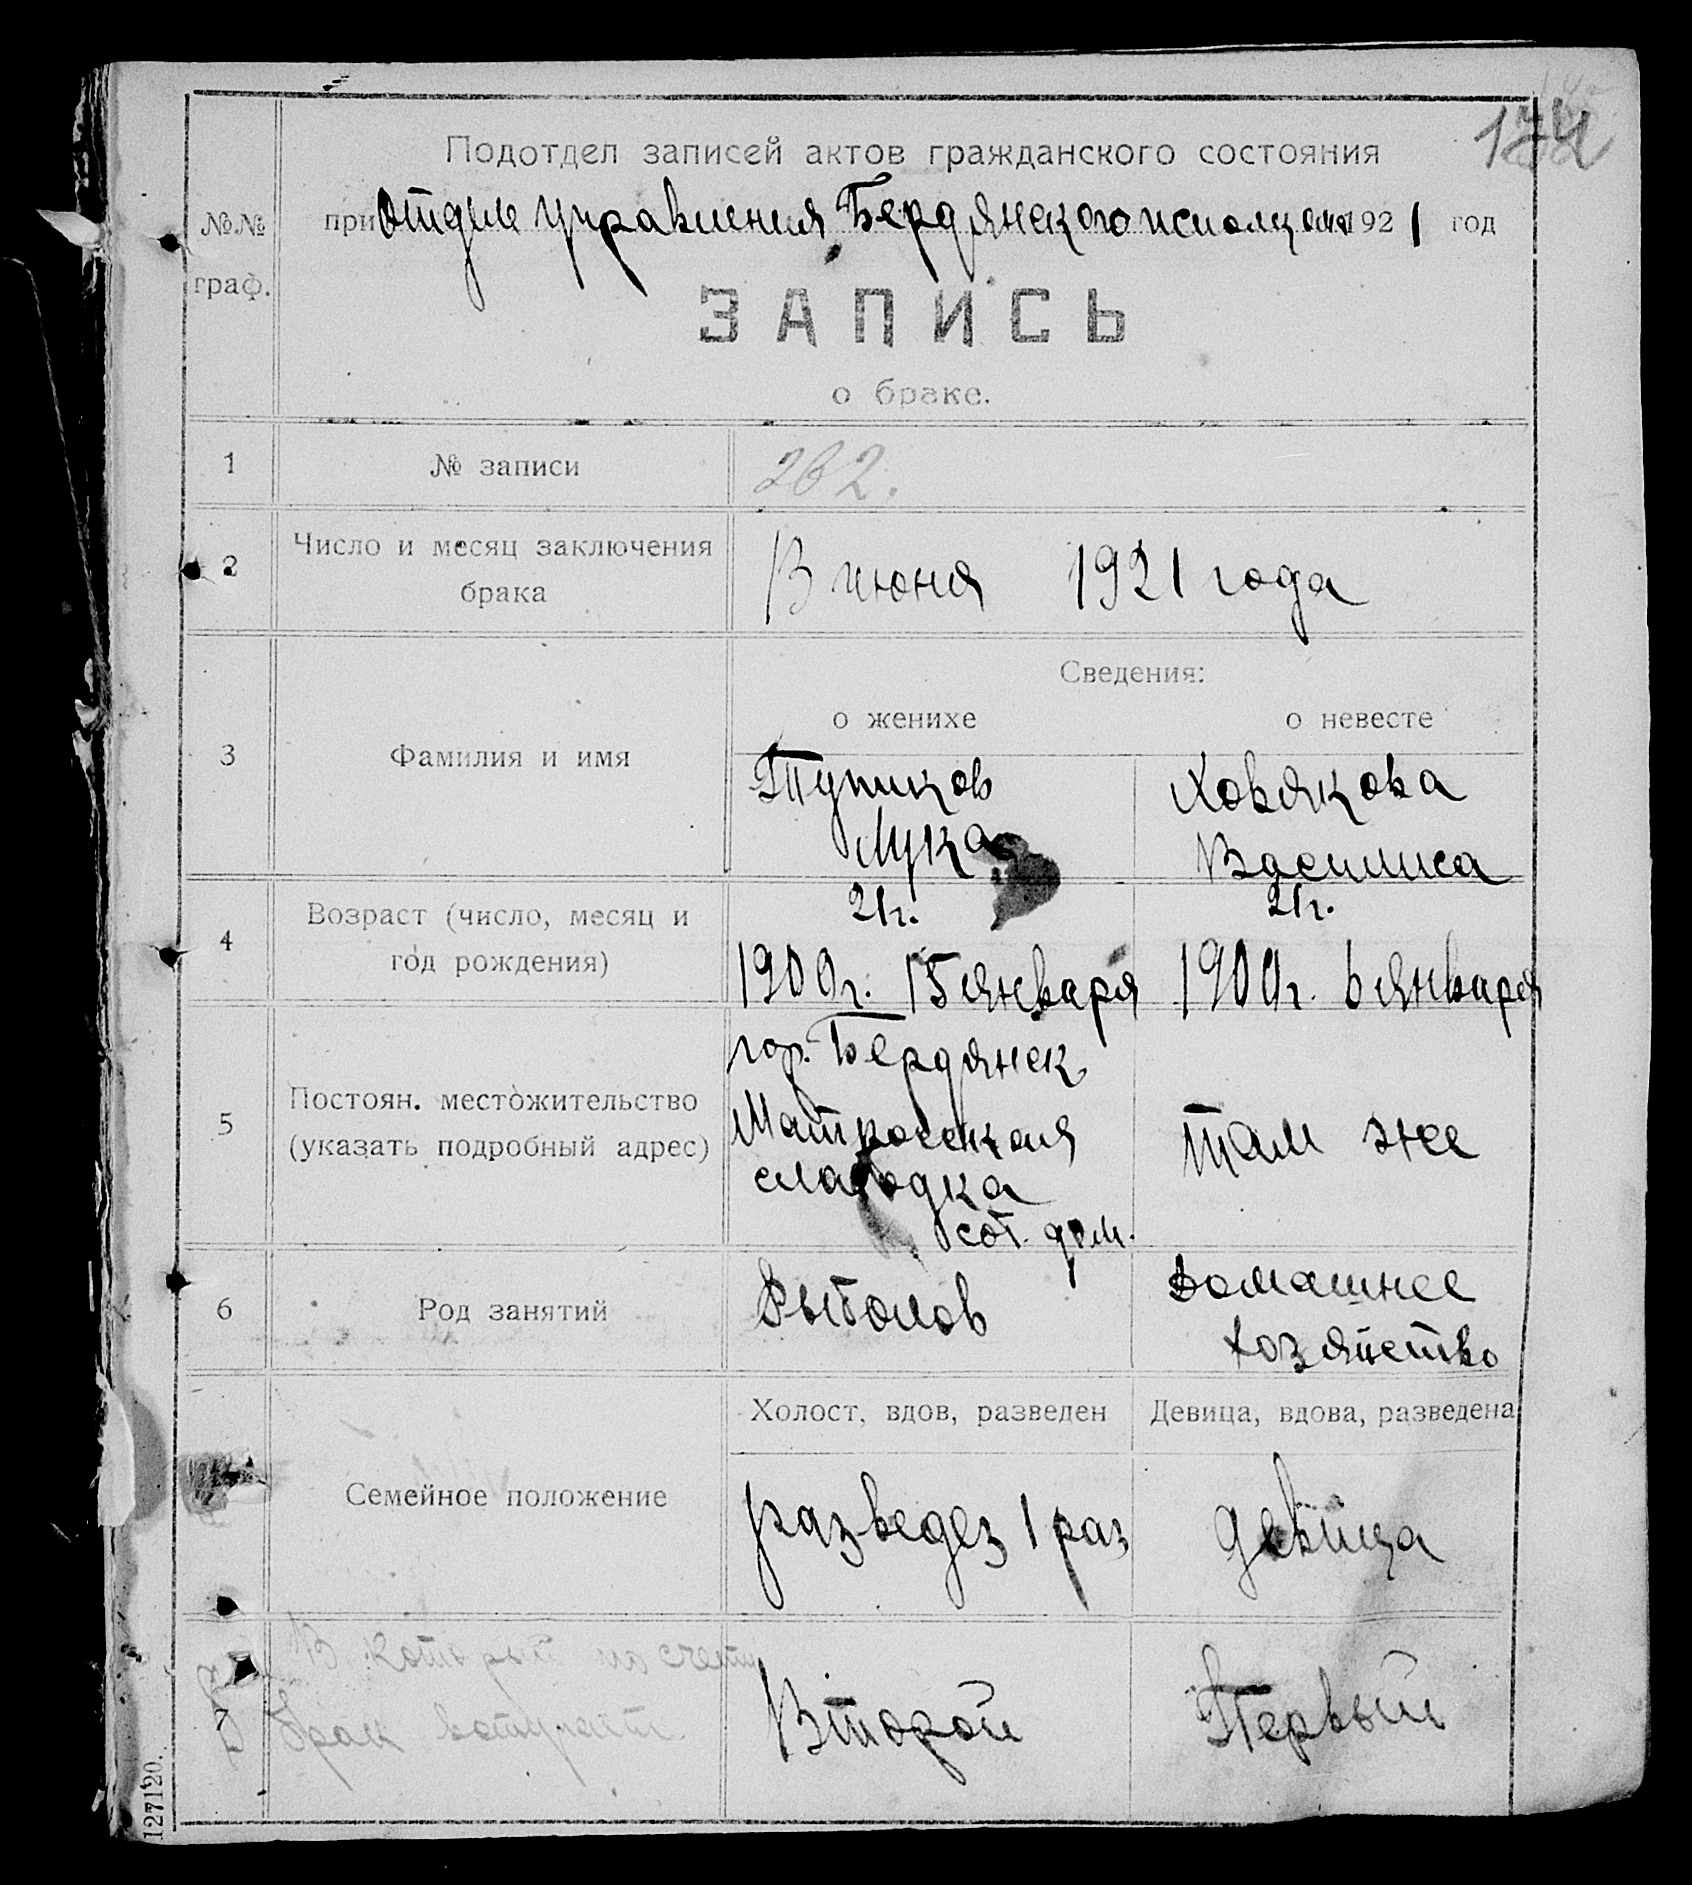 174
Подотдел записей актов гражданского состояния
№№ граф.
при Отделе Управления Бердянского исполкома 1921 год
ЗАПИСЬ
о браке.
1 № записи 262.
2 Число и месяц заключения брака
13 июня 1921 года
Сведения:
о женихе о невесте
3 Фамилия и имя
Тупиков Ховякова
Лука Василиса
4 Возраст (число, месяц и год рождения)
21г. 21г.
1900г. 15 января 1900г. 6 января
5 Постоян. местожительство
(указать подробный адрес)
гор. Бердянск
Матросская там же
слабодка
соб. дом.
6 Род занятий
Рыболов Домашнее
хозяйство
Холост, вдов, разведен Девица, вдова, разведена
Семейное положение
разведез 1 раз девица
7 В который по счету
брак вступает
Второй Первый
127120.